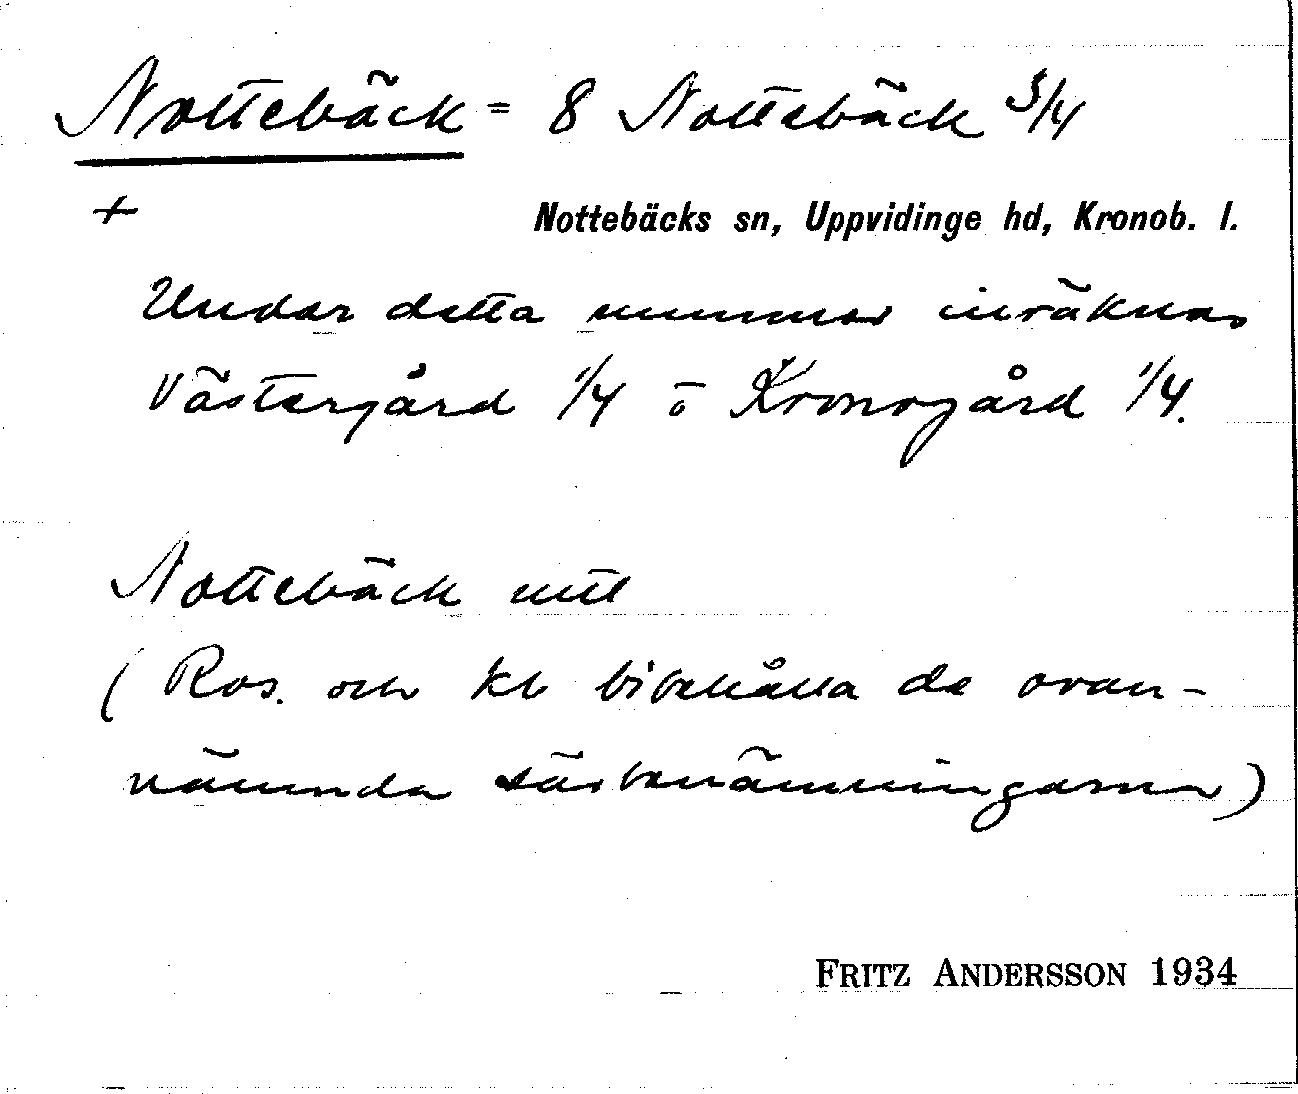 Nottebäck = 8 Nottebäck 3/4
+
Nottebäcks sn, Uppvidinge hd, Kronob. l.
Under detta nummer inräknas
Västergård 1/4 o Kronogård 1/4.
Nottebäck mtl
(Ros. och kb bibehålla de ovan-
nämnda särbenämningarna)
FRITZ ANDERSSON 1934